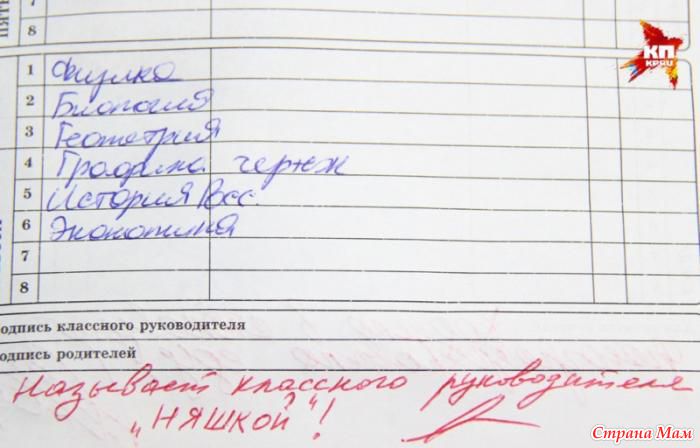 ПЯТН
7
8
КП
КРЫМ
1 Физика
2 Биология
3 Геометрия
4 Графика чертж
5 История Рос
6 Экономика
7
8
одпись классного руководителя
одпись родителей
Называет классного руководителя
"НЯШКОЙ"!
Страна Мам